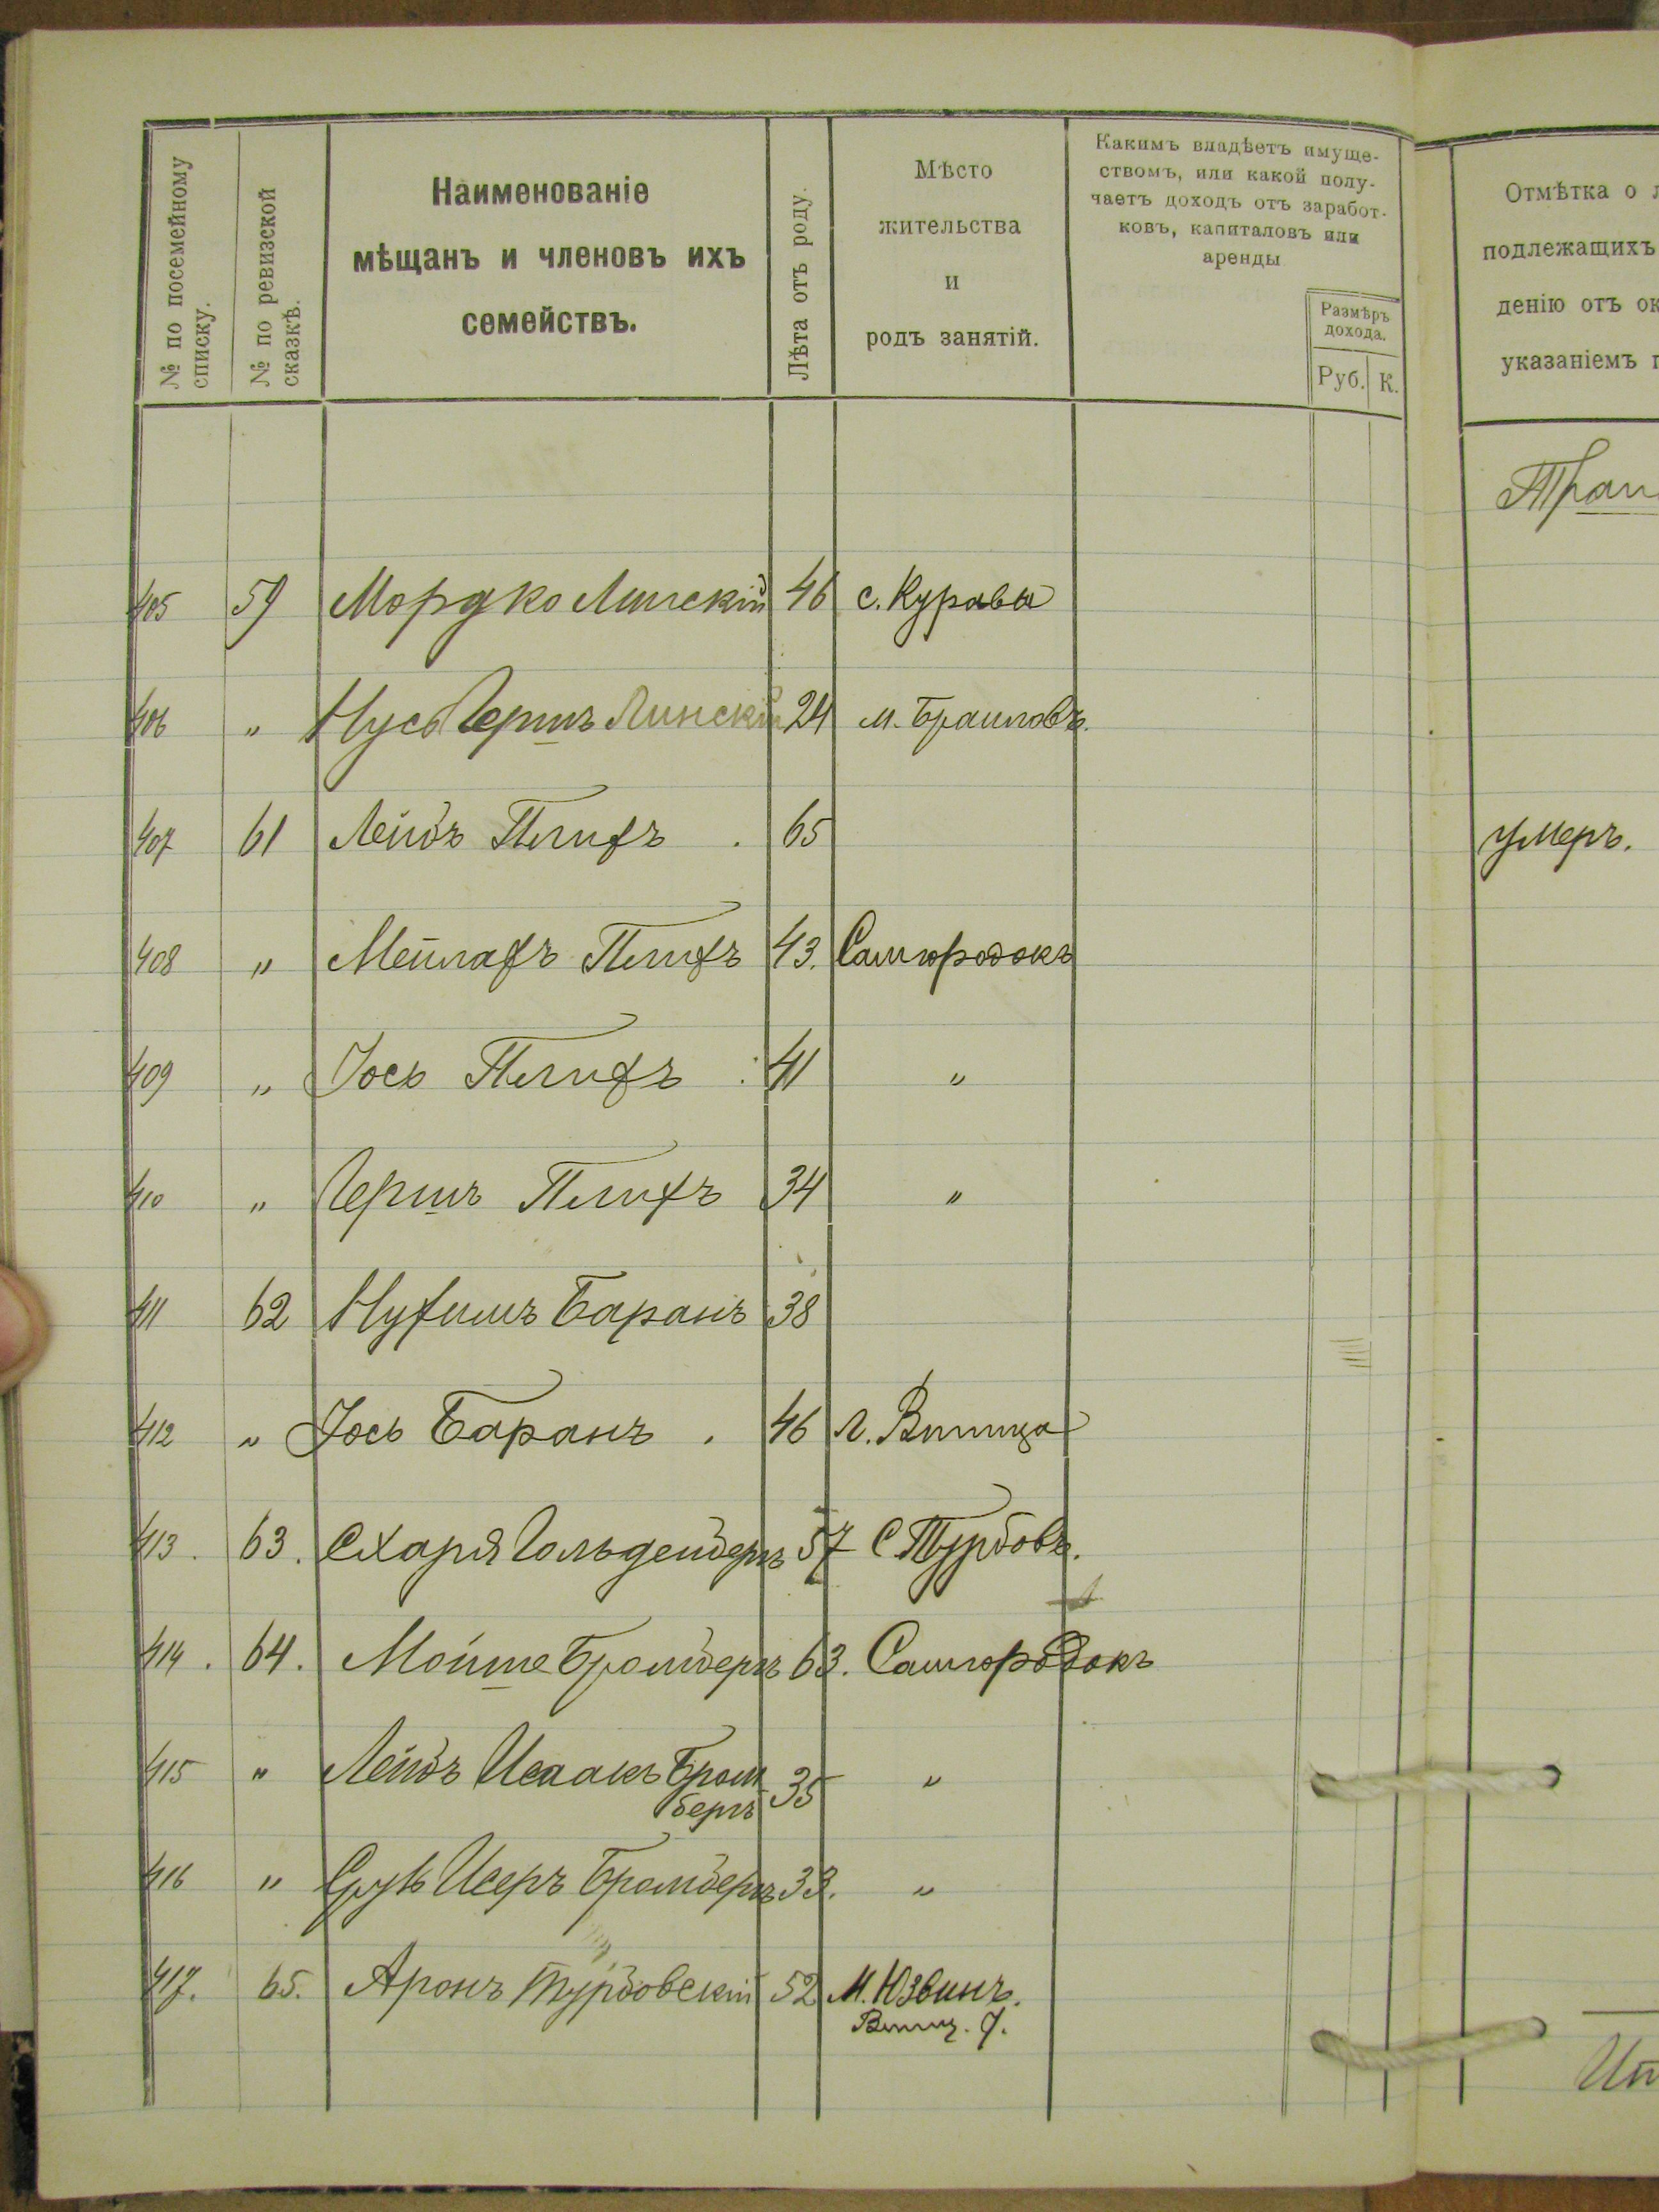 № по посемейному списку.
№ по ревизской сказкѣ.
Наименованіе
мѣщанъ и членовъ ихъ
семействъ.
Лѣта отъ роду.
Мѣсто
жительства
и
родъ занятій.
Какимъ владѣетъ имуще-
ствомъ, или какой полу-
чаетъ доходъ отъ заработ-
ковъ, капиталовъ или
аренды
Размѣръ
дохода.
Руб. К.
Отмѣтка о
подлежащихъ
денію отъ ок
указаніемъ
405 59 Мордко Линскій 46 с. Курава
406 " Нусь Гершъ Линскій 24 м. Браиловъ.
407 61 Лейбъ Плихъ . 65 умеръ.
408 " Мейлахъ Плихъ 43. Самгородокъ
409 " Іось Плихъ 41 "
410 " Гершъ Плихъ 34 "
411 62 Нухимъ Баранъ 38
412 " Іось Баранъ . 46 г. Винница
413. 63. Схаря Гольденбергъ 57 С Турбовъ.
414. 64. Мойше Бромбергъ 63. Самгородокъ
415 " Лейбъ Исаакъ Бром
бергъ 35 "
416 " Сруль Исеръ Бромбергъ 33. "
417. 65. Аронъ Турбовскій 52 М. Юзвинъ.
Винниц. у.